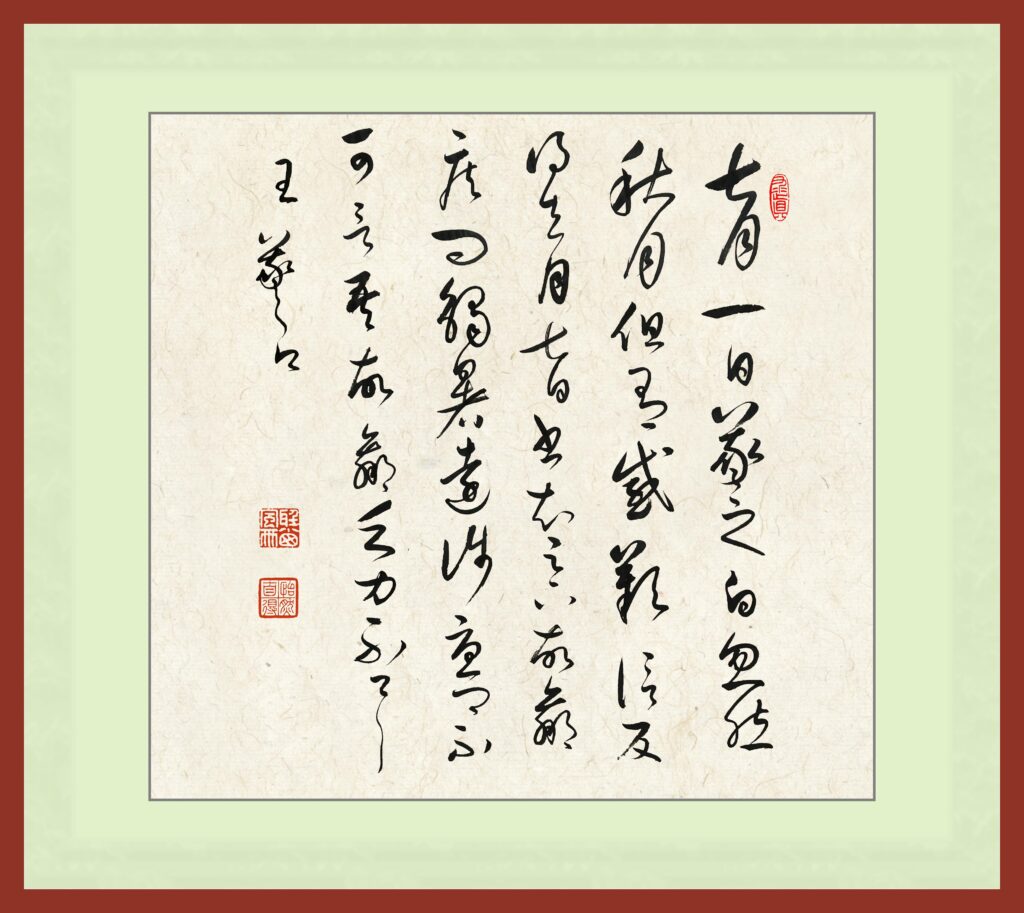 七月一日羲之白忽然
秋月但有感歎信反
得去月七日書知足下故羸
疾問觸暑遠涉憂卿不
可言吾故羸乏力不具
王羲之白